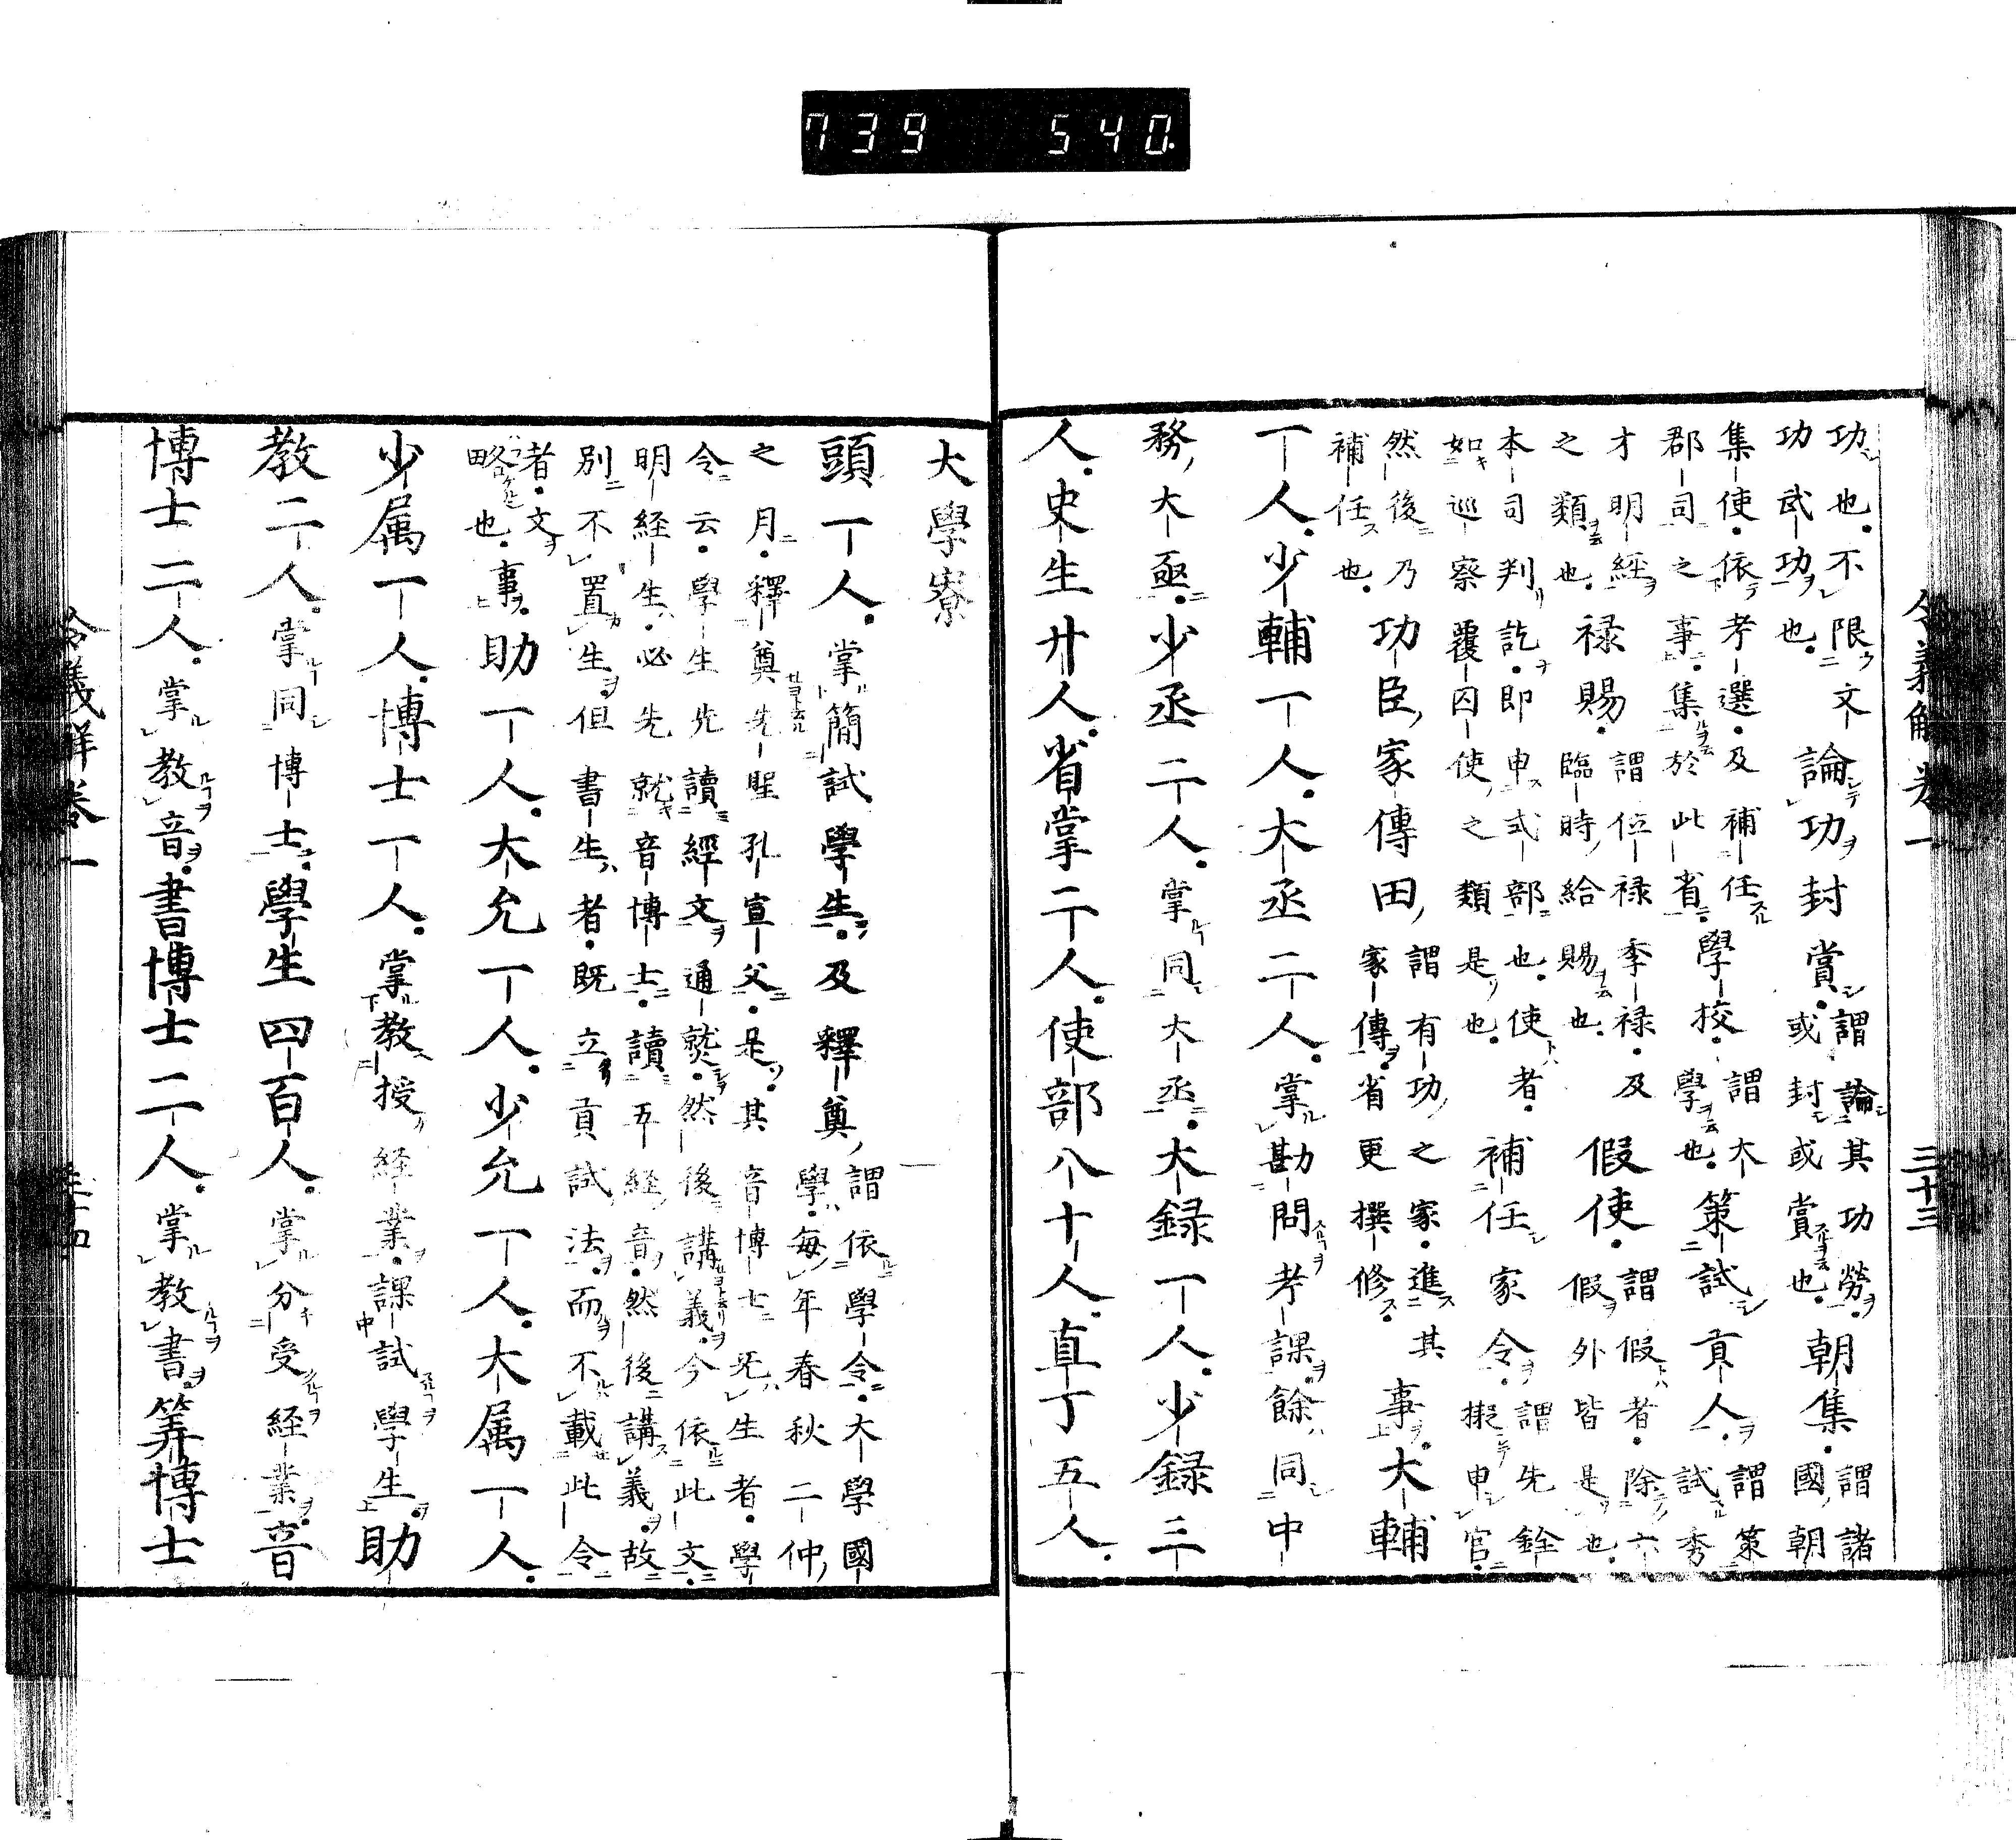 739 540
令義解卷一 三十三
功也不限文 論功封賞 謂論其功勞 朝集 謂諸
功武功也 或封或賞也 國朝
集使依考選及補任 學校 謂大 策試貢人 謂策
郡司之事集於此省 學也 試秀
才明經 祿賜 謂位祿季祿及 假使 謂假者除六
之類也 臨時給賜也 假外皆是也
本司判訖即申式部也使者 補任家令 謂先銓
如巡察覆囚使之類是也 擬申官
然後乃 功臣家傳田 謂有功之家進其 事大輔
補任也 家傳省更撰修
一人少輔一人大丞二人掌勘問考課餘同中
務大丞少丞二人掌同大丞大録一人少録三
人史生廿人省掌二人使部八十人直丁五人
大學寮
頭一人掌簡試學生及釋奠 謂依學令大學國
學每年春秋二仲
之月釋奠先聖孔宣父是其音博士既生者學
令云學生先讀經文通熟然後講義今依此文
明経生必先就音博士讀五経音然後講義故
別不置生但書生者既立貢試法而不載此令
者文
略也 事助一人大允一人少允一人大属一人
少属一人博士一人掌教授経業課試學生助
教二人掌同博士學生四百人掌分受経業音
博士二人掌教音書博士二人掌教書筭博士
令義解卷一